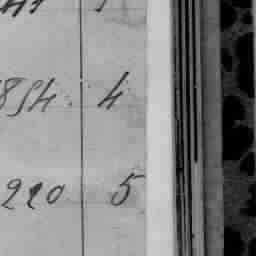 854. 4
220 5